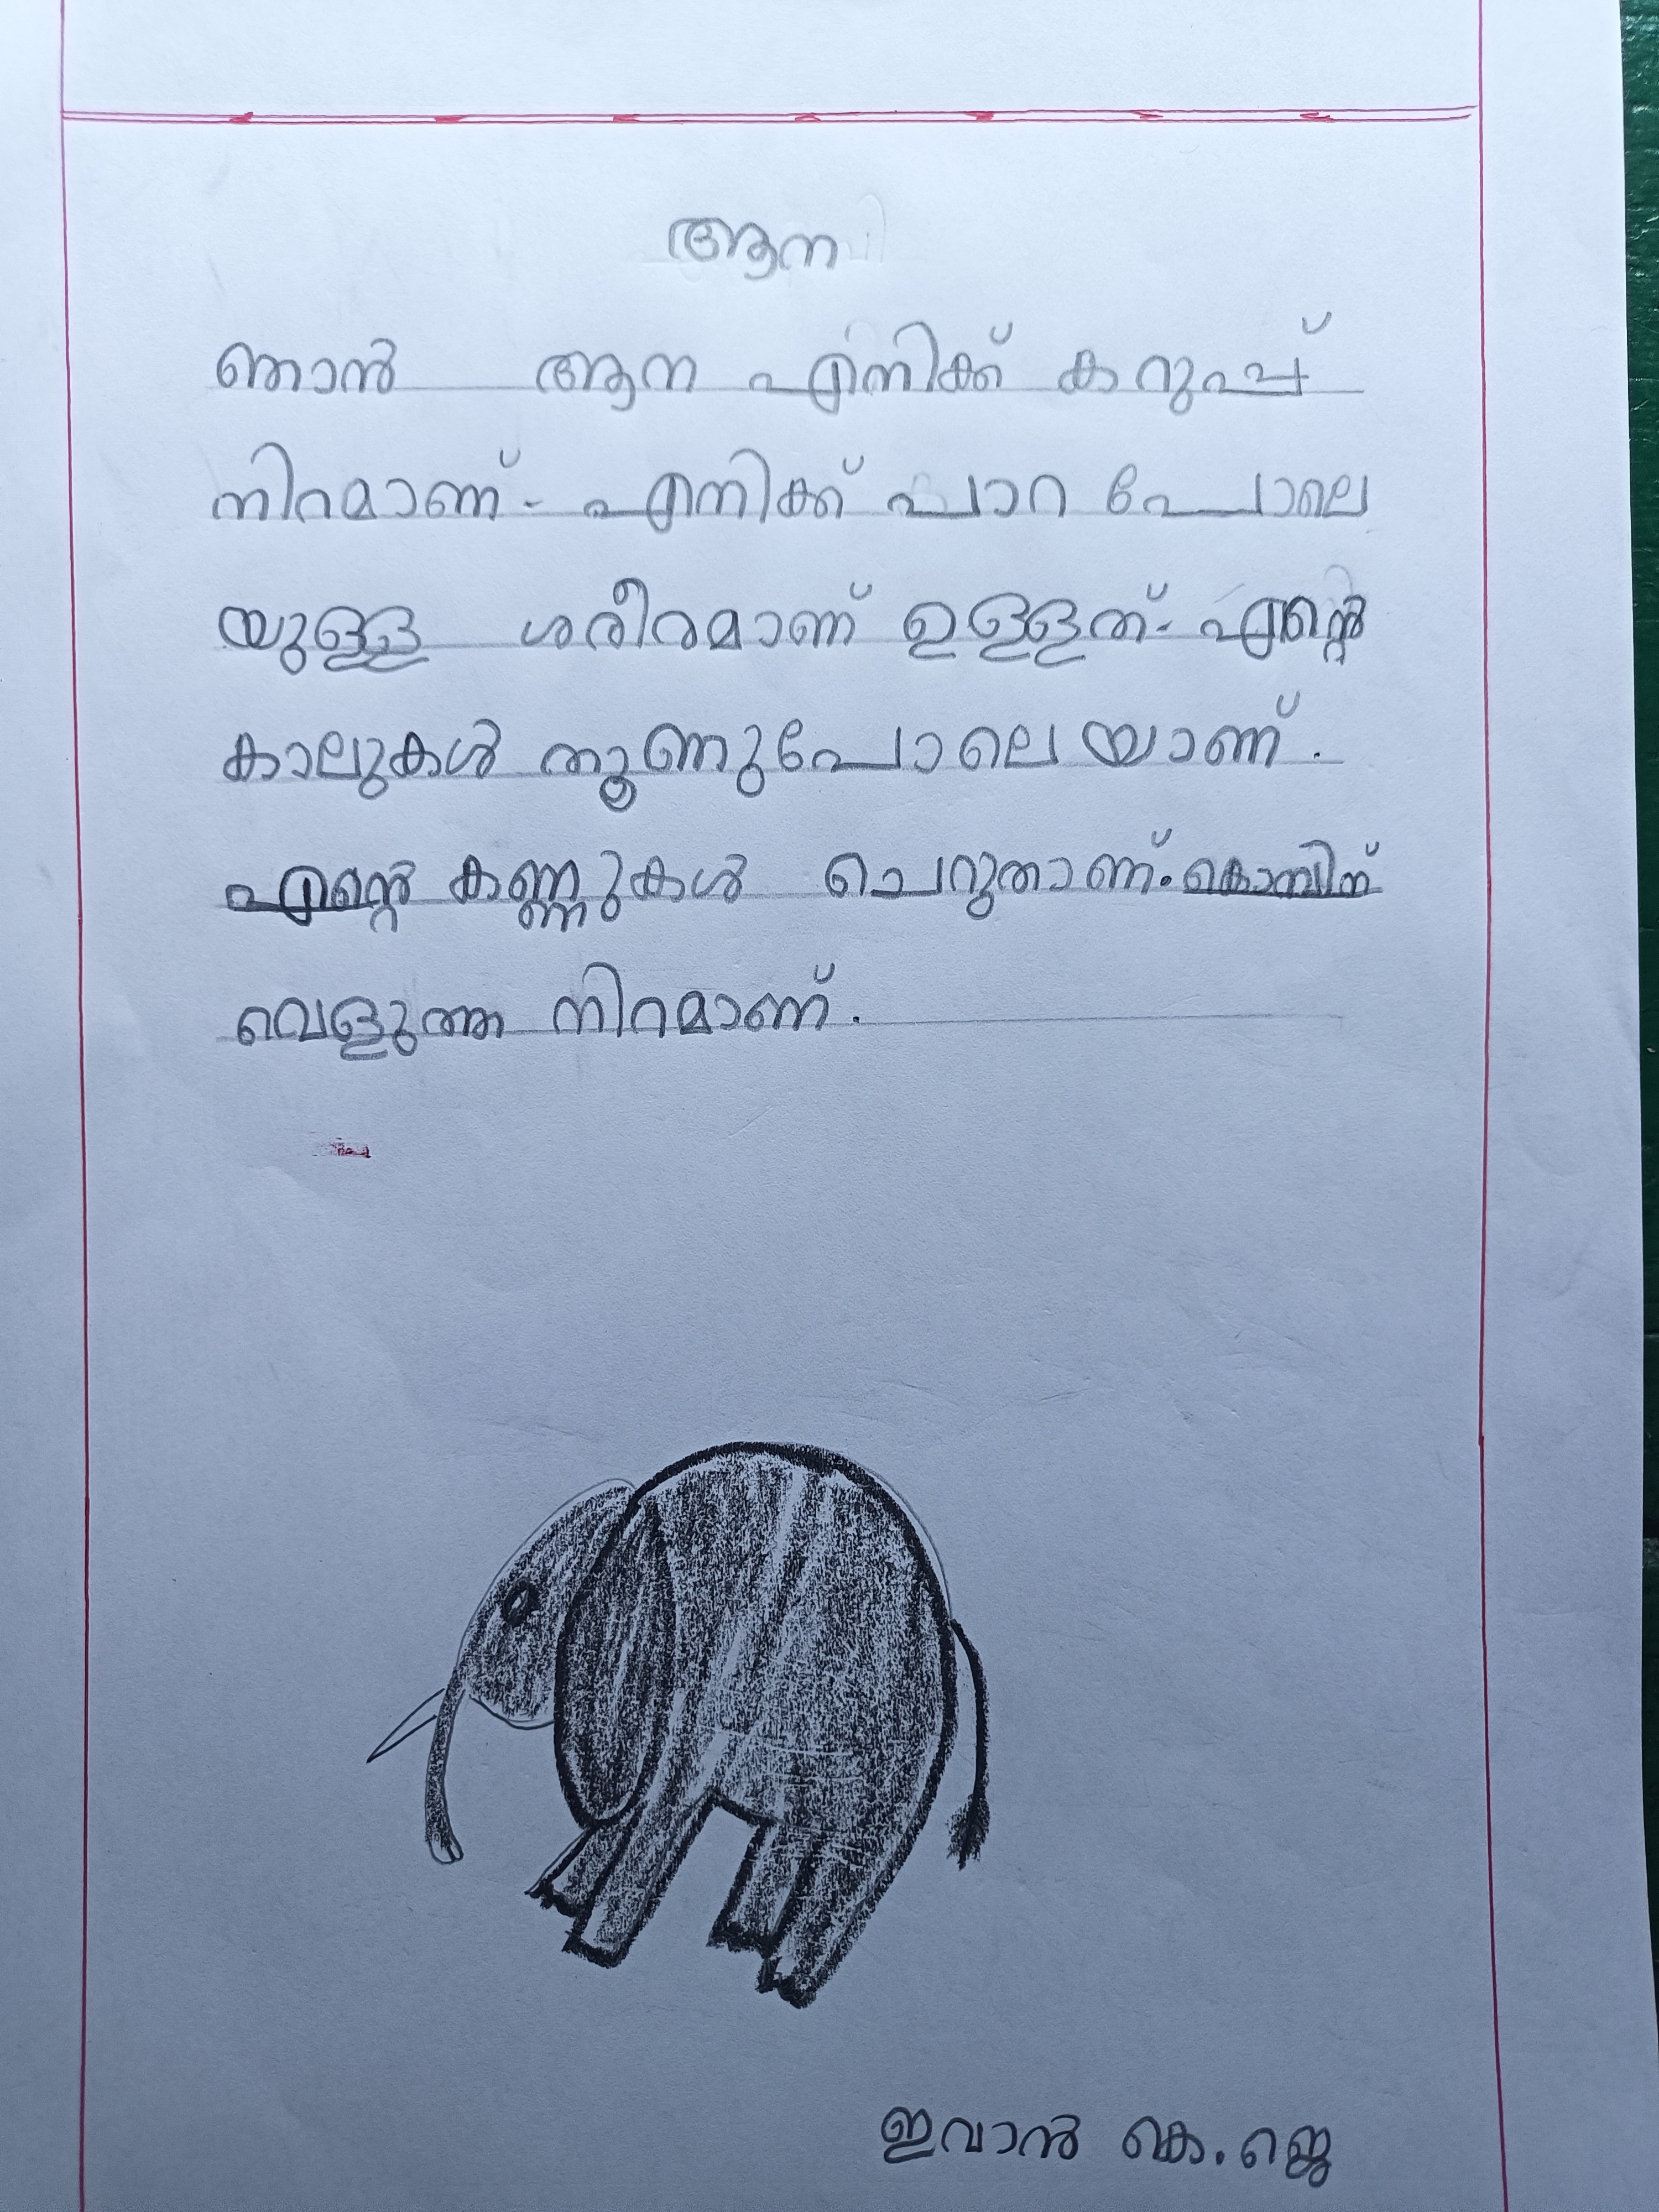 ആന
ഞാൻ ആന എനിക്ക് കറുപ്പ്
നിറമാണ്. എനിക്ക് പാറ പോലെ
യുള്ള ശരീരമാണ് ഉള്ളത്. എന്റെ
കാലുകൾ തൂണുപോലെയാണ്.
എന്റെ കണ്ണുകൾ ചെറുതാണ്. കൊമ്പിന്
വെളുത്ത നിറമാണ്.
ഇവാൻ കെ.ജെ